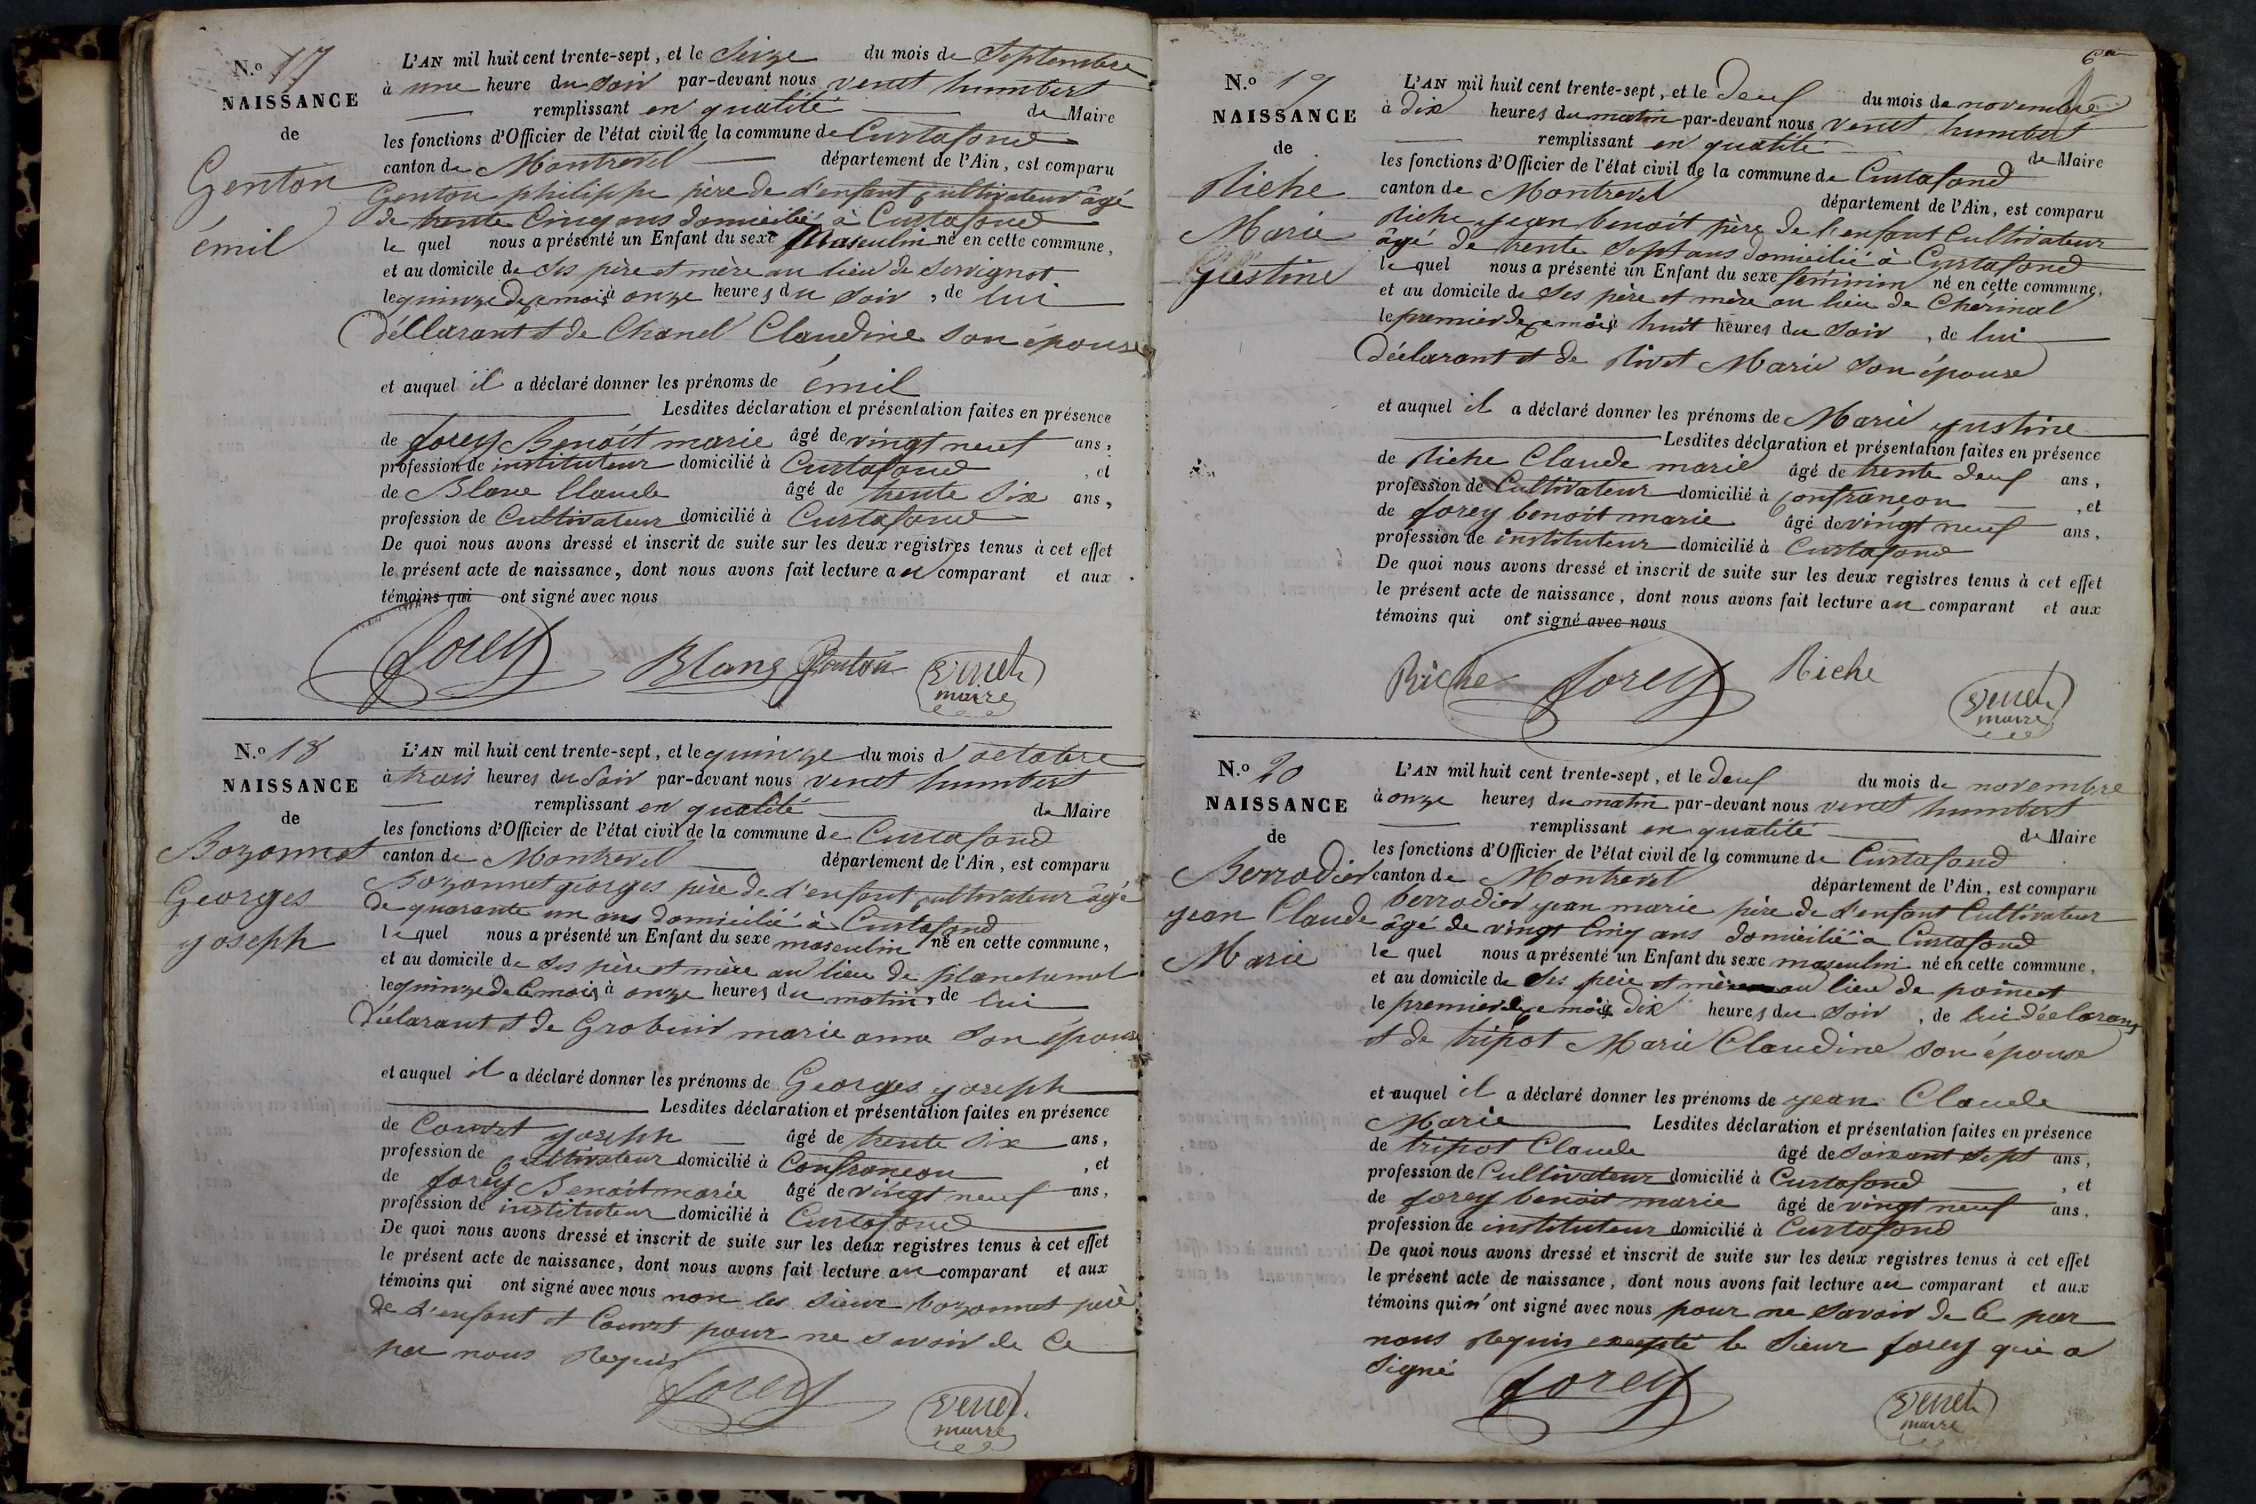 N.º 17
NAISSANCE
de
Genton
émil
L'AN mil huit cent trente-sept, et le Seize du mois de Septembre
à une heure du soir par-devant nous venet humbert
remplissant en qualité de Maire
les fonctions d'Officier de l'état civil de la commune de Curtafond
canton de Montrevel département de l'Ain, est comparu
Genton philippe père de l'enfant Cultivateur âgé
de trente Cinq ans domicilié à Curtafond
le quel nous a présenté un Enfant du sexe Masculin né en cette commune,
et au domicile de Ses père et mère au lieu de Servignat
le quinze de ce mois à onze heures du soir, de lui
déllarant et de Chanel Claudine son épouse
et auquel il a déclaré donner les prénoms de émil
Lesdites déclaration et présentation faites en présence
de forey Benoit marie âgé de vingt neuf ans,
profession de instituteur domicilié à Curtafond, et
de Blanc Claude âgé de trente Six ans,
profession de Cultivateur domicilié à Curtafond
De quoi nous avons dressé et inscrit de suite sur les deux registres tenus à cet effet
le présent acte de naissance, dont nous avons fait lecture au comparant et aux
témoins qui ont signé avec nous
forey Blanc Genton Venet
maire
N.º 18
NAISSANCE
de
Bozonnet
Georges
joseph
L'AN mil huit cent trente-sept, et le quinze du mois d'octobre
à trois heures du Soir par-devant nous venet humbert
remplissant en qualité de Maire
les fonctions d'Officier de l'état civil de la commune de Curtafond
canton de Montrevel département de l'Ain, est comparu
Bozonnet georges père de l'enfant cultivateur âgé
de quarante un ans domicilié à Curtafond
le quel nous a présenté un Enfant du sexe masculin né en cette commune,
et au domicile de Ses père et mère au lieu de planchemel
le quinze de Ce mois à onze heures du matin, de lui
déclarant et de Grobuis marie anne son épouse
et auquel il a déclaré donner les prénoms de Georges joseph
Lesdites déclaration et présentation faites en présence
de Couvet joseph âgé de trente six ans,
profession de Cultivateur domicilié à Confrançon, et
de forey Benoit marie âgé de vingt neuf ans,
profession de instituteur domicilié à Curtafond
De quoi nous avons dressé et inscrit de suite sur les deux registres tenus à cet effet
le présent acte de naissance, dont nous avons fait lecture au comparant et aux
témoins qui ont signé avec nous non les Sieur bozonnet père
de l'enfant et Couvet pour ne savoir de Ce
par nous requis
forey Venet
maire
N.º 19
NAISSANCE
de
Riche
Marie
justine
L'AN mil huit cent trente-sept, et le deuf du mois de novembre
à dix heures du matin par-devant nous venet humbert
remplissant en qualité de Maire
les fonctions d'Officier de l'état civil de la commune de Curtafond
canton de Montrevel département de l'Ain, est comparu
Riche jean benoit père de l'enfant Cultivateur
âgé de trente Sept ans domicilié à Curtafond
le quel nous a présenté un Enfant du sexe féminin né en cette commune,
et au domicile de Ses père et mère au lieu de Chérinal
le premier de ce mois à huit heures du soir, de lui
déclarant et de Rivet Marie son épouse
et auquel il a déclaré donner les prénoms de Marie justine
Lesdites déclaration et présentation faites en présence
de Riche Claude marie âgé de trente deuf ans,
profession de Cultivateur domicilié à Confrançon, et
de forey benoit marie âgé de vingt neuf ans,
profession de instituteur domicilié à Curtafond
De quoi nous avons dressé et inscrit de suite sur les deux registres tenus à cet effet
le présent acte de naissance, dont nous avons fait lecture au comparant et aux
témoins qui ont signé avec nous
Riche forey Riche Venet
maire
N.º 20
NAISSANCE
de
Berrodier
jean Claude
Marie
L'AN mil huit cent trente-sept, et le deuf du mois de novembre
à onze heures du matin par-devant nous venet humbert
remplissant en qualité de Maire
les fonctions d'Officier de l'état civil de la commune de Curtafond
canton de Montrevel département de l'Ain, est comparu
berrodier jean marie père de l'enfant Cultivateur
âgé de vingt Cinq ans domicilié à Curtafond
le quel nous a présenté un Enfant du sexe masculin né en cette commune,
et au domicile de Ses père et mère au lieu de poincet
le premier de ce mois à dix heures du soir, de lui déclarant
et de tripot Marie Claudine son épouse
et auquel il a déclaré donner les prénoms de jean Claude
Marie Lesdites déclaration et présentation faites en présence
de tripot Claude âgé de soixant sept ans,
profession de Cultivateur domicilié à Curtafond, et
de forey benoit marie âgé de vingt neuf ans,
profession de instituteur domicilié à Curtafond
De quoi nous avons dressé et inscrit de suite sur les deux registres tenus à cet effet
le présent acte de naissance, dont nous avons fait lecture au comparant et aux
témoins qui n'ont signé avec nous pour ne savoir de Ce par
nous requis excepté le Sieur forey qui a
signé
forey Venet
maire